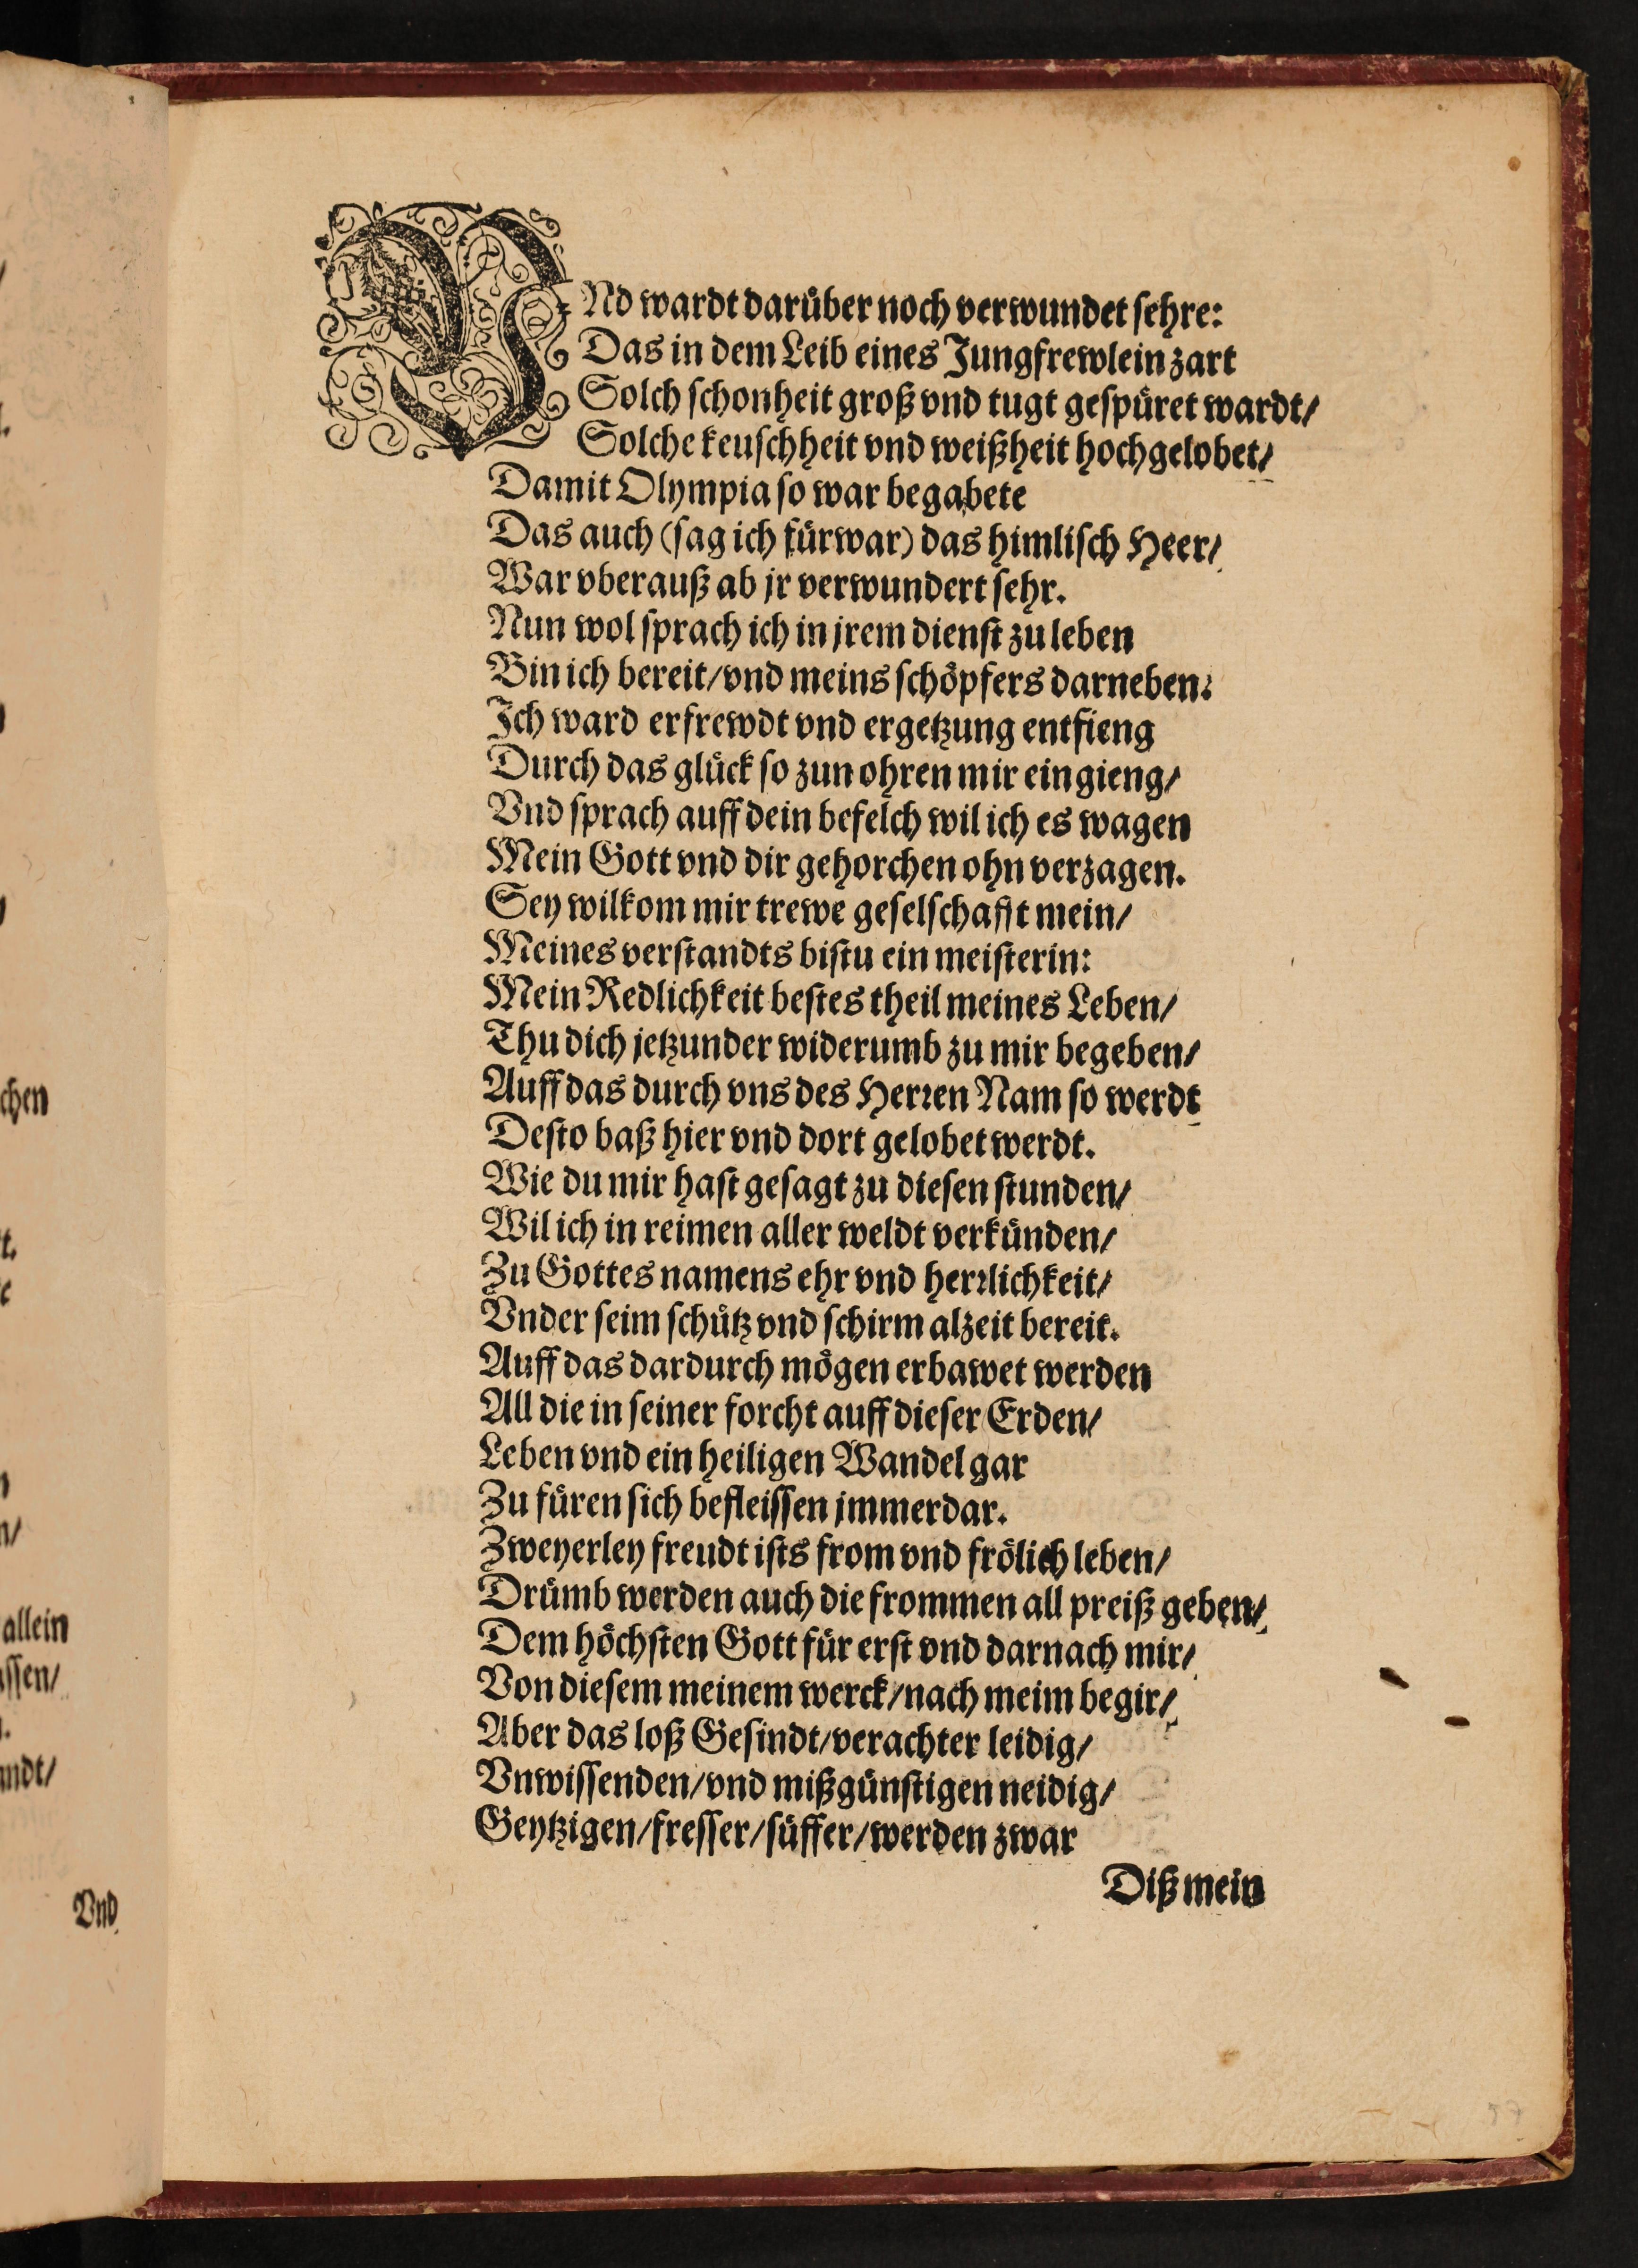 VNd wardt darüber noch verwundet sehre:
Das in dem Leib eines Jungfrewlein zart
Solch schonheit groß vnd tugt gespüret wardt/
Solche keuschheit vnd weißheit hochgelobet/
Damit Olympia so war begabete
Das auch (sag ich fürwar) das himlisch Heer/
War vberauß ab jr verwundert sehr.
Nun wol sprach ich in jrem dienst zu leben
Bin ich bereit/vnd meins schöpfers darneben.
Ich ward erfrewdt vnd ergetzung entfieng
Durch das glück so zun ohren mir eingieng/
Vnd sprach auff dein befelch wil ich es wagen
Mein Gott vnd dir gehorchen ohn verzagen.
Sey wilkom mir trewe geselschafft mein/
Meines verstandts bistu ein meisterin:
Mein Redlichkeit bestes theil meines Leben/
Thu dich jetzunder widerumb zu mir begeben/
Auff das durch vns des Herren Nam so werdt
Desto baß hier vnd dort gelobet werdt.
Wie du mir hast gesagt zu diesen stunden/
Wil ich in reimen aller weldt verkünden/
Zu Gottes namens ehr vnd herrlichkeit/
Vnder seim schütz vnd schirm alzeit bereit.
Auff das dardurch mögen erbawet werden
All die in seiner forcht auff dieser Erden/
Leben vnd ein heiligen Wandel gar
Zu füren sich befleissen jmmerdar.
Zweyerley freudt ists from vnd frölich leben/
Drümb werden auch die frommen all preiß geben/
Dem höchsten Gott für erst vnd darnach mir/
Von diesem meinem werck/nach meim begir/
Aber das loß Gesindt/verachter leidig/
Vnwissenden/vnd mißgünstigen neidig/
Geytzigen/fresser/süffer/werden zwar
Diß mein
chen
allein
ssen/
Vnd